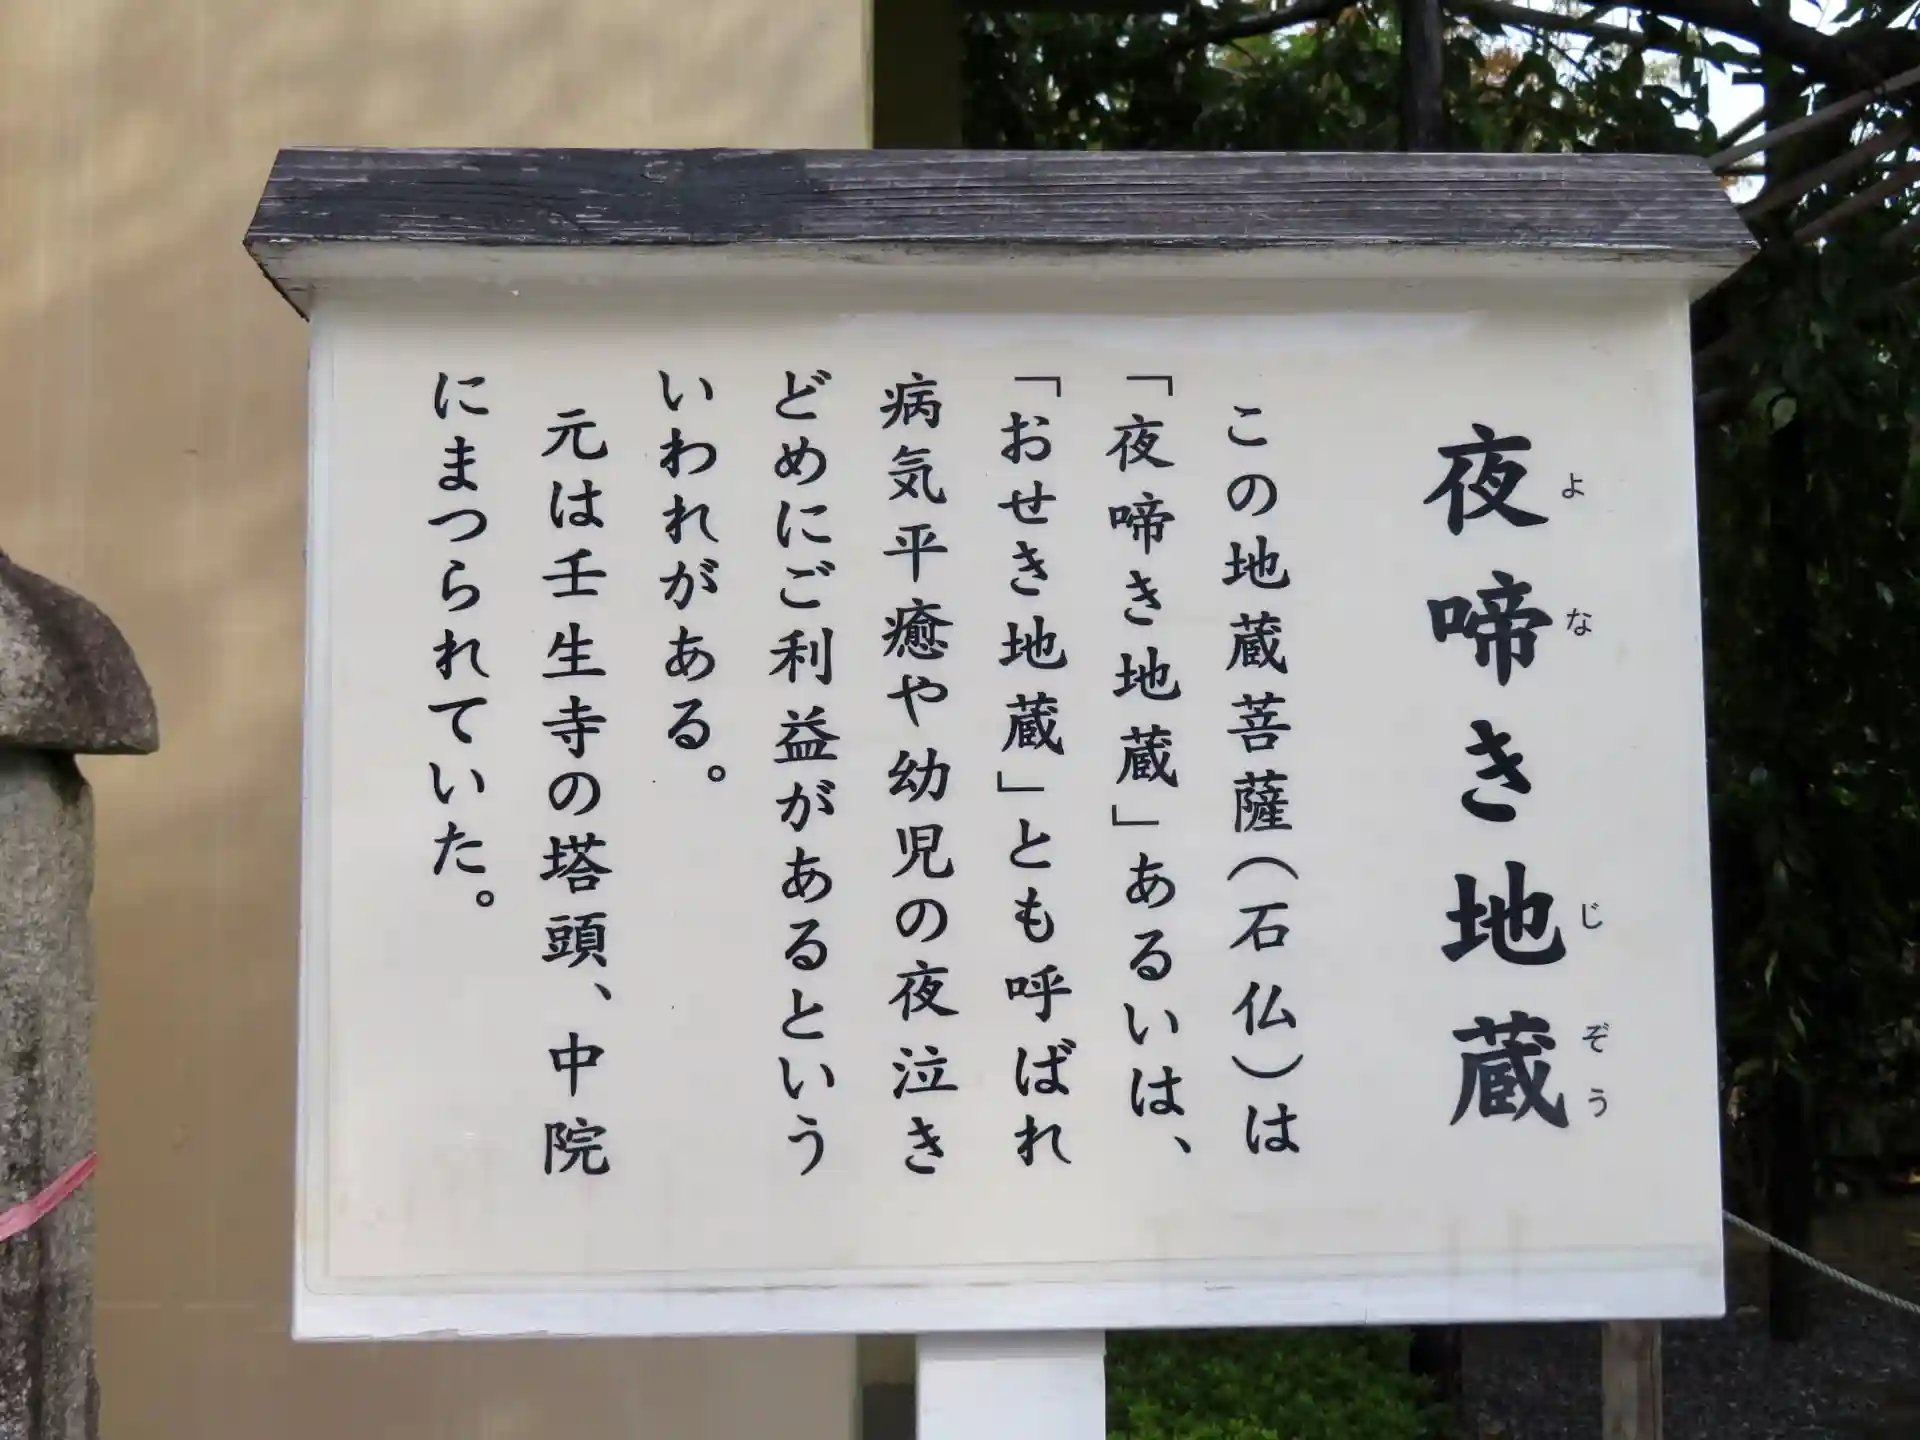 夜啼き地蔵
よ な じ ぞう
この地蔵菩薩(石仏)は
「夜啼き地蔵」あるいは、
「おせき地蔵」とも呼ばれ
病気平癒や幼児の夜泣き
どめにご利益があるという
いわれがある。
元は壬生寺の塔頭、中院
にまつられていた。